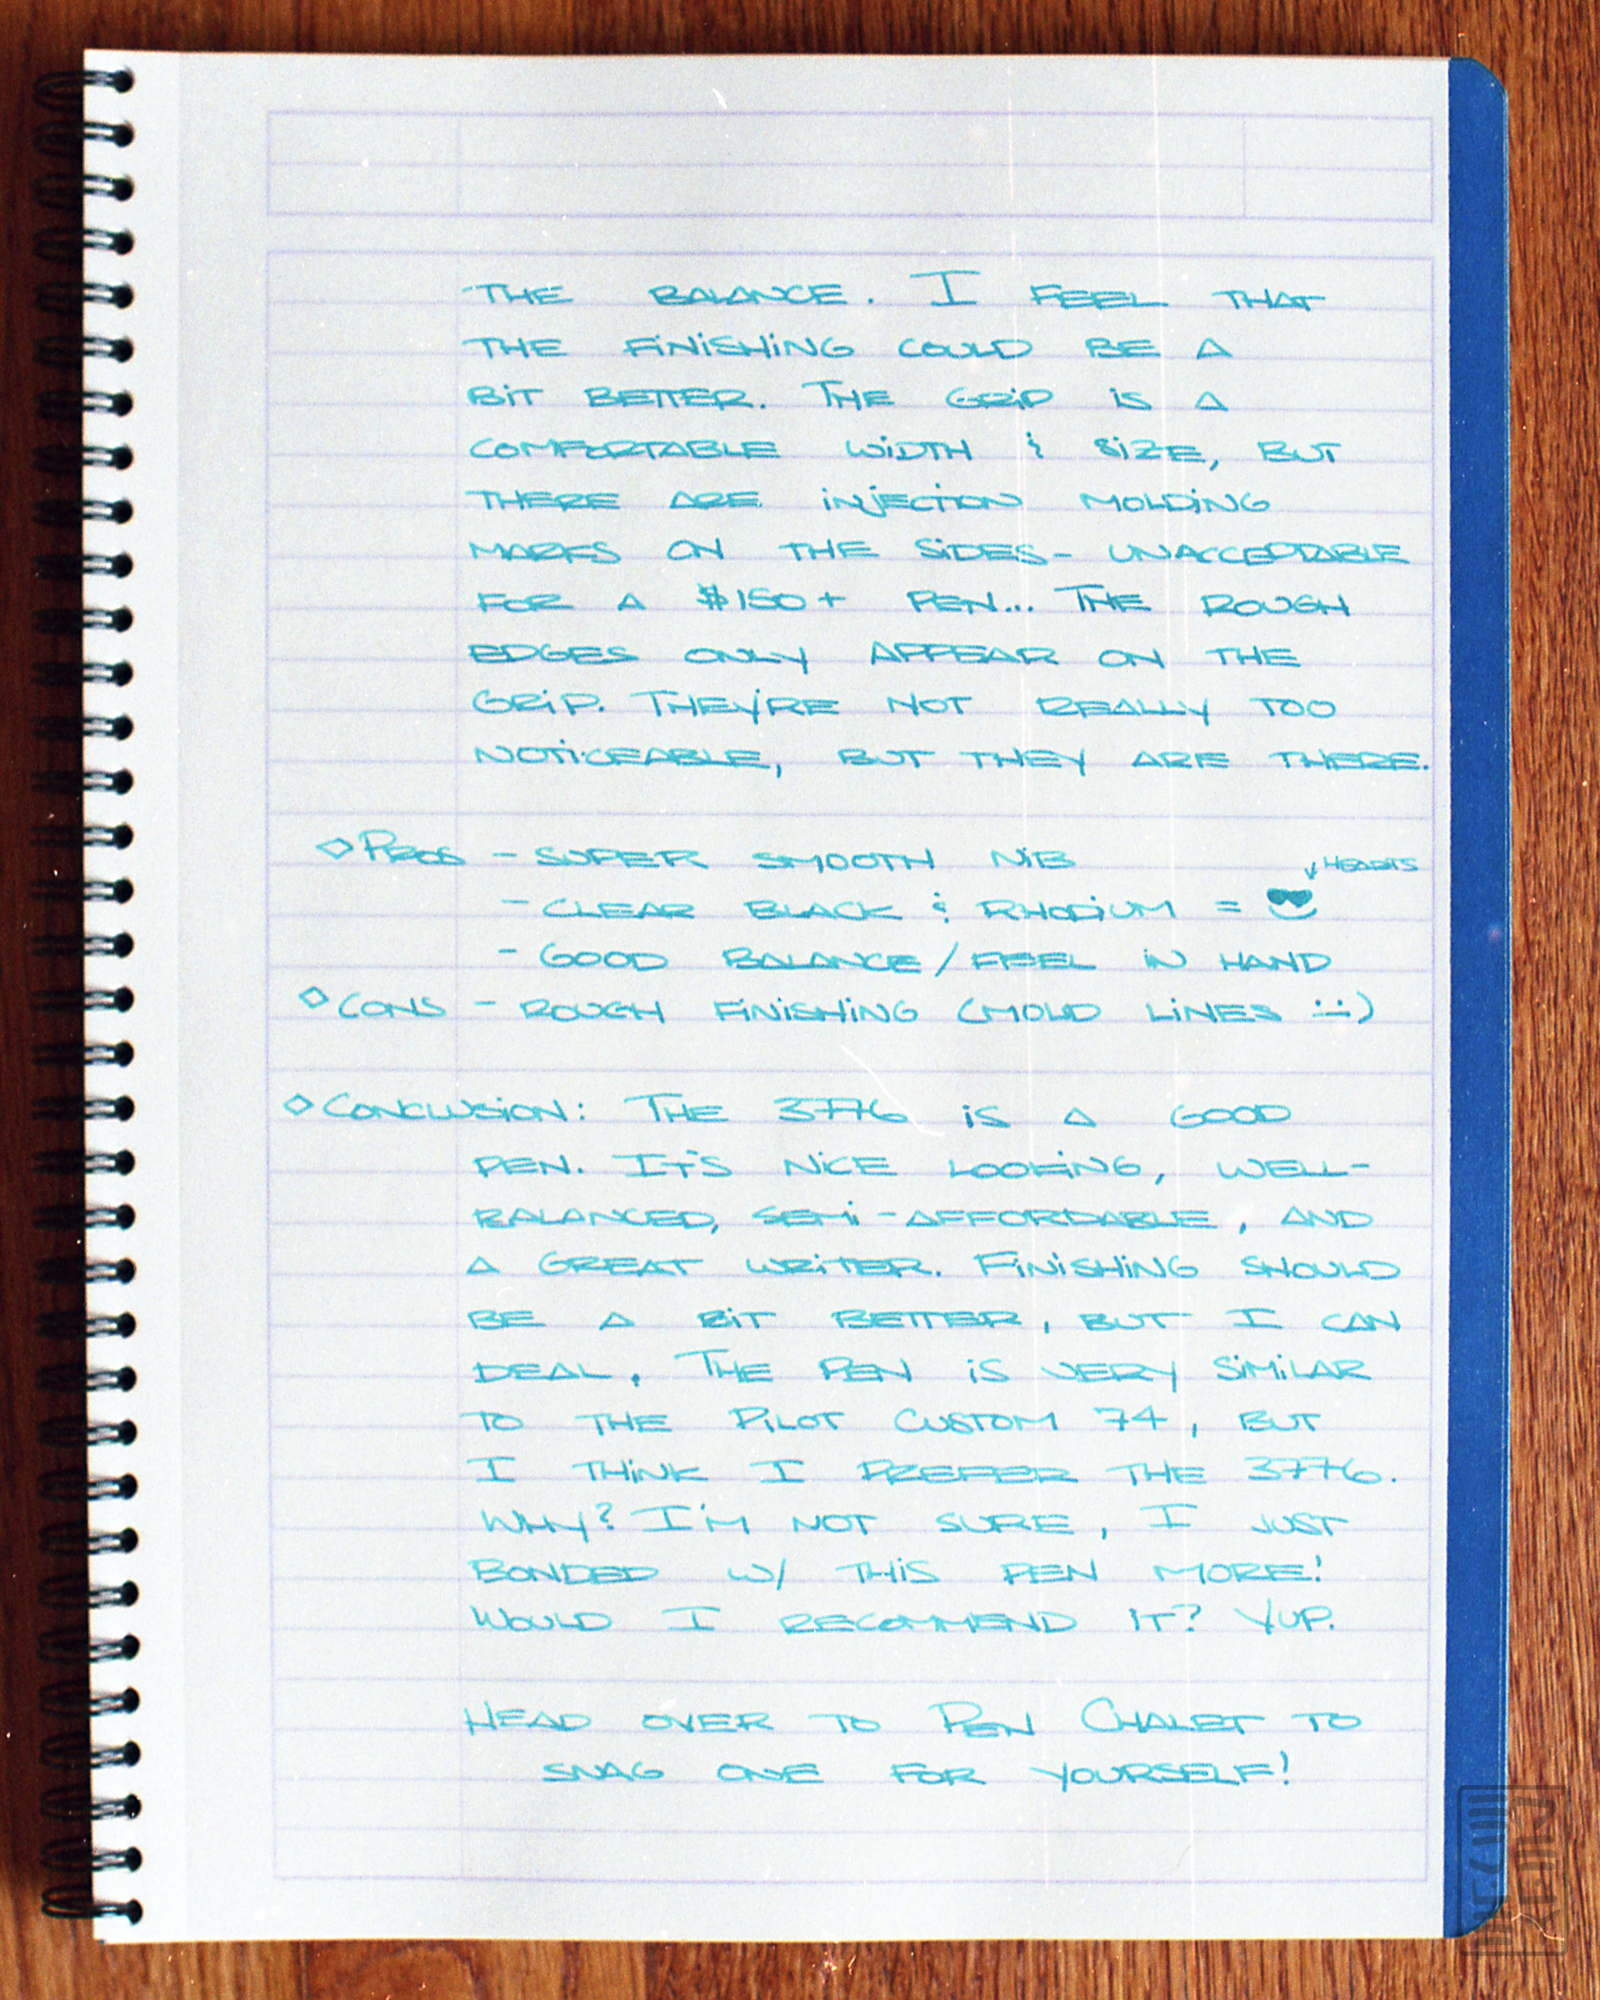 THE BALANCE. I FEEL THAT
THE FINISHING COULD BE A
BIT BETTER. THE GRIP IS A
COMFORTABLE WIDTH & SIZE, BUT
THERE ARE INJECTION MOLDING
MARKS ON THE SIDES - UNACCEPTABLE
FOR A $150+ PEN... THE ROUGH
EDGES ONLY APPEAR ON THE
GRIP. THEY'RE NOT REALLY TOO
NOTICEABLE, BUT THEY ARE THERE.
◇ PROS - SUPER SMOOTH NIB
HEARTS
- CLEAR BLACK & RHODIUM =
- GOOD BALANCE/FEEL IN HAND
◇ CONS - ROUGH FINISHING (MOLD LINES :-()
◇ CONCLUSION: THE 3776 IS A GOOD
PEN. IT'S NICE LOOKING, WELL-
BALANCED, SEMI-AFFORDABLE, AND
A GREAT WRITER. FINISHING SHOULD
BE A BIT BETTER, BUT I CAN
DEAL. THE PEN IS VERY SIMILAR
TO THE PILOT CUSTOM 74, BUT
I THINK I PREFER THE 3776.
WHY? I'M NOT SURE, I JUST
BONDED W/ THIS PEN MORE!
WOULD I RECOMMEND IT? YUP.
HEAD OVER TO PEN CHALET TO
SNAG ONE FOR YOURSELF!